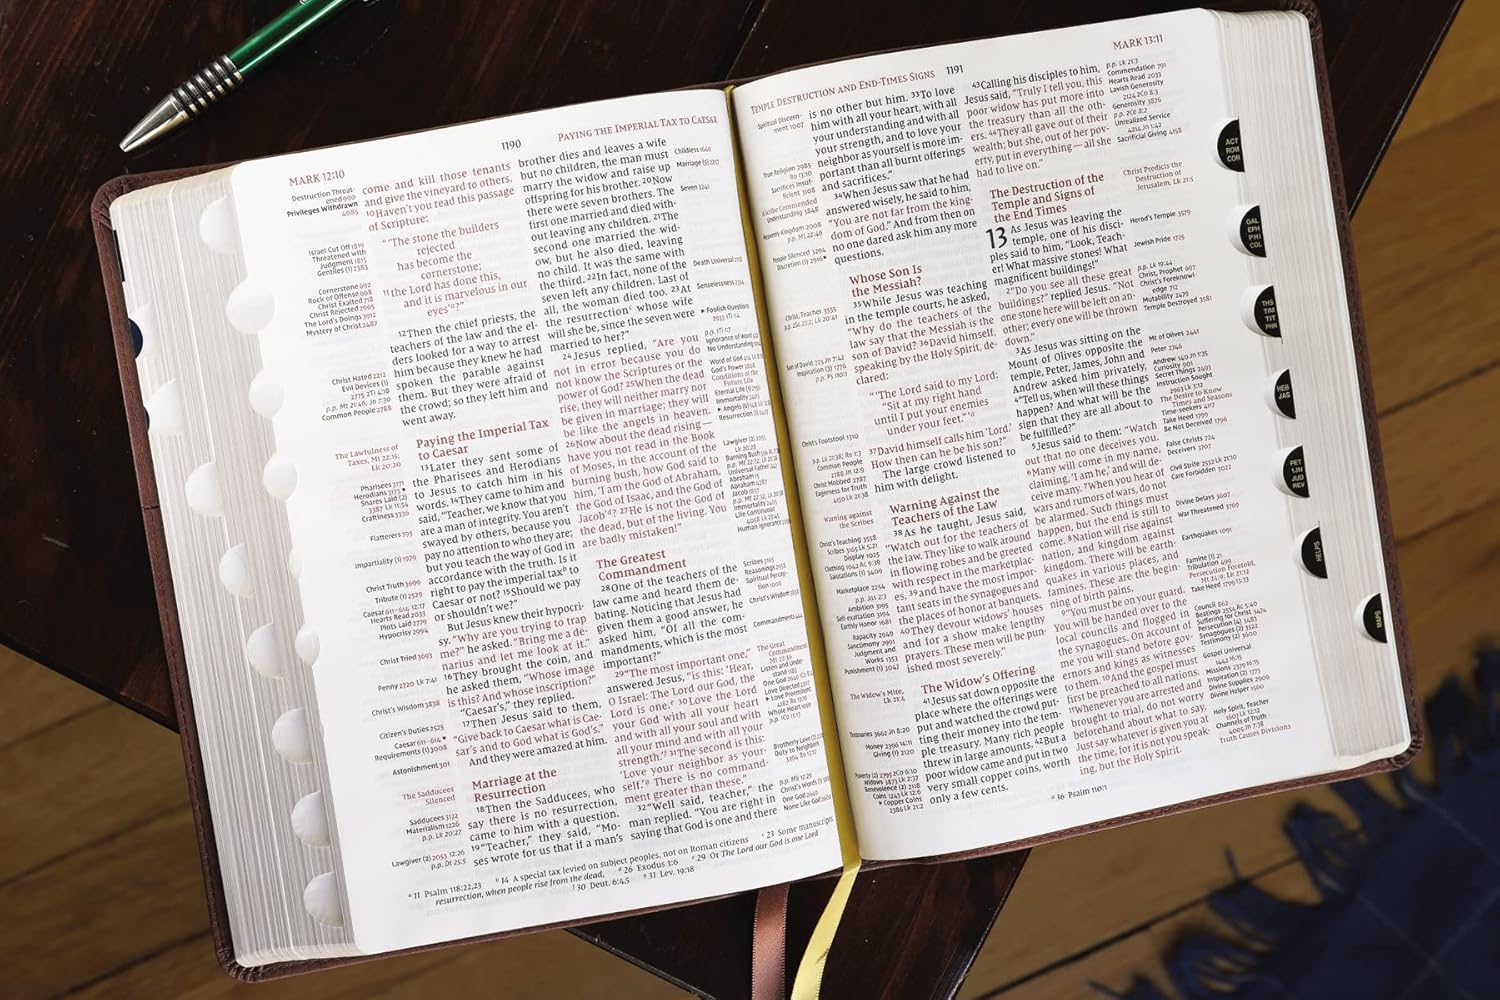 MARK 12:10
1190
PAYING THE IMPERIAL TAX TO CAESAR
Destruction Threat-
ened 990
Privileges Withdrawn
4085
Israel Cut Off 1819
Threatened with
Judgment 1815
Gentiles (1) 2383
Cornerstone 692
Rock of Offense 698
Christ Exalted 718
Christ Rejected 2965
The Lord's Doings 3912
Mystery of Christ 2487
Christ Hated 2212
Evil Devices (1)
2775 2Ti 4:18
p.p. Mt 21:46; Jn 7:30
Common People 2788
The Lawfulness of
Taxes, Mt 22:15;
Lk 20:20
Pharisees 3171
Flatterers 793
Impartiality (1) 1979
Christ Truth 3699
Tribute (1) 2529
Hearts Read 2033
Plots Laid 2779
Hypocrisy 2994
Christ Tried 3693
Penny 2720 Lk 7:41
Christ's Wisdom 3838
Citizen's Duties 2525
Requirements (1) 3008
Astonishment 301
The Sadducees
Silenced
Sadducees 3172
Materialism 1226
p.p. Lk 20:27
Lawgiver (2) 2053 12:26
p.p. Dt 25:5
come and kill those tenants
and give the vineyard to others.
10Haven't you read this passage
of Scripture:
“‘The stone the builders
rejected
has become the
cornerstone;
11the Lord has done this,
and it is marvelous in our
eyes’a?”
12Then the chief priests, the
teachers of the law and the el-
ders looked for a way to arrest
him because they knew he had
spoken the parable against
them. But they were afraid of
the crowd; so they left him and
went away.
Paying the Imperial Tax
to Caesar
13Later they sent some of
the Pharisees and Herodians
to Jesus to catch him in his
words. 14They came to him and
said, “Teacher, we know that you
are a man of integrity. You aren't
swayed by others, because you
pay no attention to who they are;
but you teach the way of God in
accordance with the truth. Is it
right to pay the imperial taxb to
Caesar or not? 15Should we pay
or shouldn't we?”
But Jesus knew their hypocri-
sy. “Why are you trying to trap
me?” he asked. “Bring me a de-
narius and let me look at it.”
16They brought the coin, and
he asked them, “Whose image
is this? And whose inscription?”
“Caesar's,” they replied.
17Then Jesus said to them,
“Give back to Caesar what is Cae-
sar's and to God what is God's.”
And they were amazed at him.
Marriage at the
Resurrection
18Then the Sadducees, who
say there is no resurrection,
came to him with a question.
19“Teacher,” they said, “Mo-
ses wrote for us that if a man's
brother dies and leaves a wife
but no children, the man must
marry the widow and raise up
offspring for his brother. 20Now
there were seven brothers. The
first one married and died with-
out leaving any children. 21The
second one married the wid-
ow, but he also died, leaving
no child. It was the same with
the third. 22In fact, none of the
seven left any children. Last of
all, the woman died too. 23At
the resurrectionc whose wife
will she be, since the seven were
married to her?”
24Jesus replied, “Are you
not in error because you do
not know the Scriptures or the
power of God? 25When the dead
rise, they will neither marry nor
be given in marriage; they will
be like the angels in heaven.
26Now about the dead rising—
have you not read in the Book
of Moses, in the account of the
burning bush, how God said to
him, ‘I am the God of Abraham,
the God of Isaac, and the God of
Jacob’d? 27He is not the God of
the dead, but of the living. You
are badly mistaken!”
The Greatest
Commandment
28One of the teachers of the
law came and heard them de-
bating. Noticing that Jesus had
given them a good answer, he
asked him, “Of all the com-
mandments, which is the most
important?”
29“The most important one,”
answered Jesus, “is this: ‘Hear,
O Israel: The Lord our God, the
Lord is one.e 30Love the Lord
your God with all your heart
and with all your soul and with
all your mind and with all your
strength.’f 31The second is this:
‘Love your neighbor as your-
self.’g There is no command-
ment greater than these.”
32“Well said, teacher,” the
man replied. “You are right in
saying that God is one and there
Childless 1660
Seven 1241
a 11 Psalm 118:22,23 b 14 A special tax levied on subject peoples, not on Roman citizens c 23 Some manuscripts
resurrection, when people rise from the dead, d 26 Exodus 3:6 e 29 Or The Lord our God is one Lord
f 30 Deut. 6:4,5 g 31 Lev. 19:18
TEMPLE DESTRUCTION AND END-TIMES SIGNS
1191
MARK 13:11
Spiritual Discern-
ment 1007
True Religion 2985
Christ, Teacher 3555
Christ's Footstool 1310
Warning against
the Scribes
Christ's Teaching 3558
Marketplace 2254
Ambition 3195
Self-exaltation 3194
Earthly Honor 1681
Rapacity 2949
Punishment (1) 3047
The Widow's Mite,
Lk 21:4
Treasuries 3662 Jn 8:20
Giving (1) 2120
is no other but him. 33To love
him with all your heart, with all
your understanding and with all
your strength, and to love your
neighbor as yourself is more im-
portant than all burnt offerings
and sacrifices.”
34When Jesus saw that he had
answered wisely, he said to him,
“You are not far from the king-
dom of God.” And from then on
no one dared ask him any more
questions.
Whose Son Is
the Messiah?
35While Jesus was teaching
in the temple courts, he asked,
“Why do the teachers of the
law say that the Messiah is the
son of David? 36David himself,
speaking by the Holy Spirit, de-
clared:
“‘The Lord said to my Lord:
“Sit at my right hand
until I put your enemies
under your feet.”’a
37David himself calls him ‘Lord.’
How then can he be his son?”
The large crowd listened to
him with delight.
Warning Against the
Teachers of the Law
38As he taught, Jesus said,
“Watch out for the teachers of
the law. They like to walk around
in flowing robes and be greeted
with respect in the marketplac-
es, 39and have the most impor-
tant seats in the synagogues and
the places of honor at banquets.
40They devour widows' houses
and for a show make lengthy
prayers. These men will be pun-
ished most severely.”
The Widow's Offering
41Jesus sat down opposite the
place where the offerings were
put and watched the crowd put-
ting their money into the tem-
ple treasury. Many rich people
threw in large amounts. 42But a
poor widow came and put in two
very small copper coins, worth
only a few cents.
43Calling his disciples to him,
Jesus said, “Truly I tell you, this
poor widow has put more into
the treasury than all the oth-
ers. 44They all gave out of their
wealth; but she, out of her pov-
erty, put in everything—all she
had to live on.”
The Destruction of the
Temple and Signs of
the End Times
13 As Jesus was leaving the
temple, one of his disci-
ples said to him, “Look, Teach-
er! What massive stones! What
magnificent buildings!”
2“Do you see all these great
buildings?” replied Jesus. “Not
one stone here will be left on an-
other; every one will be thrown
down.”
3As Jesus was sitting on the
Mount of Olives opposite the
temple, Peter, James, John and
Andrew asked him privately,
4“Tell us, when will these things
happen? And what will be the
sign that they are all about to
be fulfilled?”
5Jesus said to them: “Watch
out that no one deceives you.
6Many will come in my name,
claiming, ‘I am he,’ and will de-
ceive many. 7When you hear of
wars and rumors of wars, do not
be alarmed. Such things must
happen, but the end is still to
come. 8Nation will rise against
nation, and kingdom against
kingdom. There will be earth-
quakes in various places, and
famines. These are the begin-
ning of birth pains.
9“You must be on your guard.
You will be handed over to the
local councils and flogged in
the synagogues. On account of
me you will stand before gov-
ernors and kings as witnesses
to them. 10And the gospel must
first be preached to all nations.
11Whenever you are arrested and
brought to trial, do not worry
beforehand about what to say.
Just say whatever is given you at
the time, for it is not you speak-
ing, but the Holy Spirit.
p.p. Lk 21:3
Commendation 791
Hearts Read 2033
Lavish Generosity
2124 2Co 8:3
Generosity 3876
p.p. 2Co 8:2
Unrealized Service
4214 Jn 1:42
Sacrificial Giving 4158
Christ Predicts the
Destruction of
Jerusalem, Lk 21:5
Herod's Temple 3579
Jewish Pride 1725
p.p. Lk 19:44
Christ, Prophet 697
Christ's Foreknowl-
edge 712
Mutability 2479
Temple Destroyed 3581
Mt of Olives 2441
Peter 2746
Secret Things 2491
Instruction Sought
The Desire to Know
Times and Seasons
Time-seekers 4117
Take Heed 1799
Be Not Deceived 1796
False Christs 724
Deceivers 3707
Civil Strife 2232 Lk 21:10
Care Forbidden 3022
Divine Delays 3607
War Threatened 3769
Earthquakes 1091
Famine (1) 21
Tribulation 499
Persecution Foretold,
Mt 24:9; Lk 21:12
Council 862
Beatings 2554 Ac 5:40
Suffering for Christ 3474
Persecution (4) 3483
Synagogues (1) 3522
Testimony (2) 3600
Gospel Universal
1442 16:15
Missions 2379 16:15
Inspiration (2) 1775
Divine Supplies 2906
Divine Helper 1560
Holy Spirit, Teacher
1607 Lk 12:12
Channels of Truth
4005 Jn 7:38
Truth Causes Divisions
a 36 Psalm 110:1
ACT
ROM
COR
GAL
EPH
PHI
COL
THS
TIM
TIT
PHN
HEB
JAS
PET
1JN
JUD
REV
HELPS
MAPS